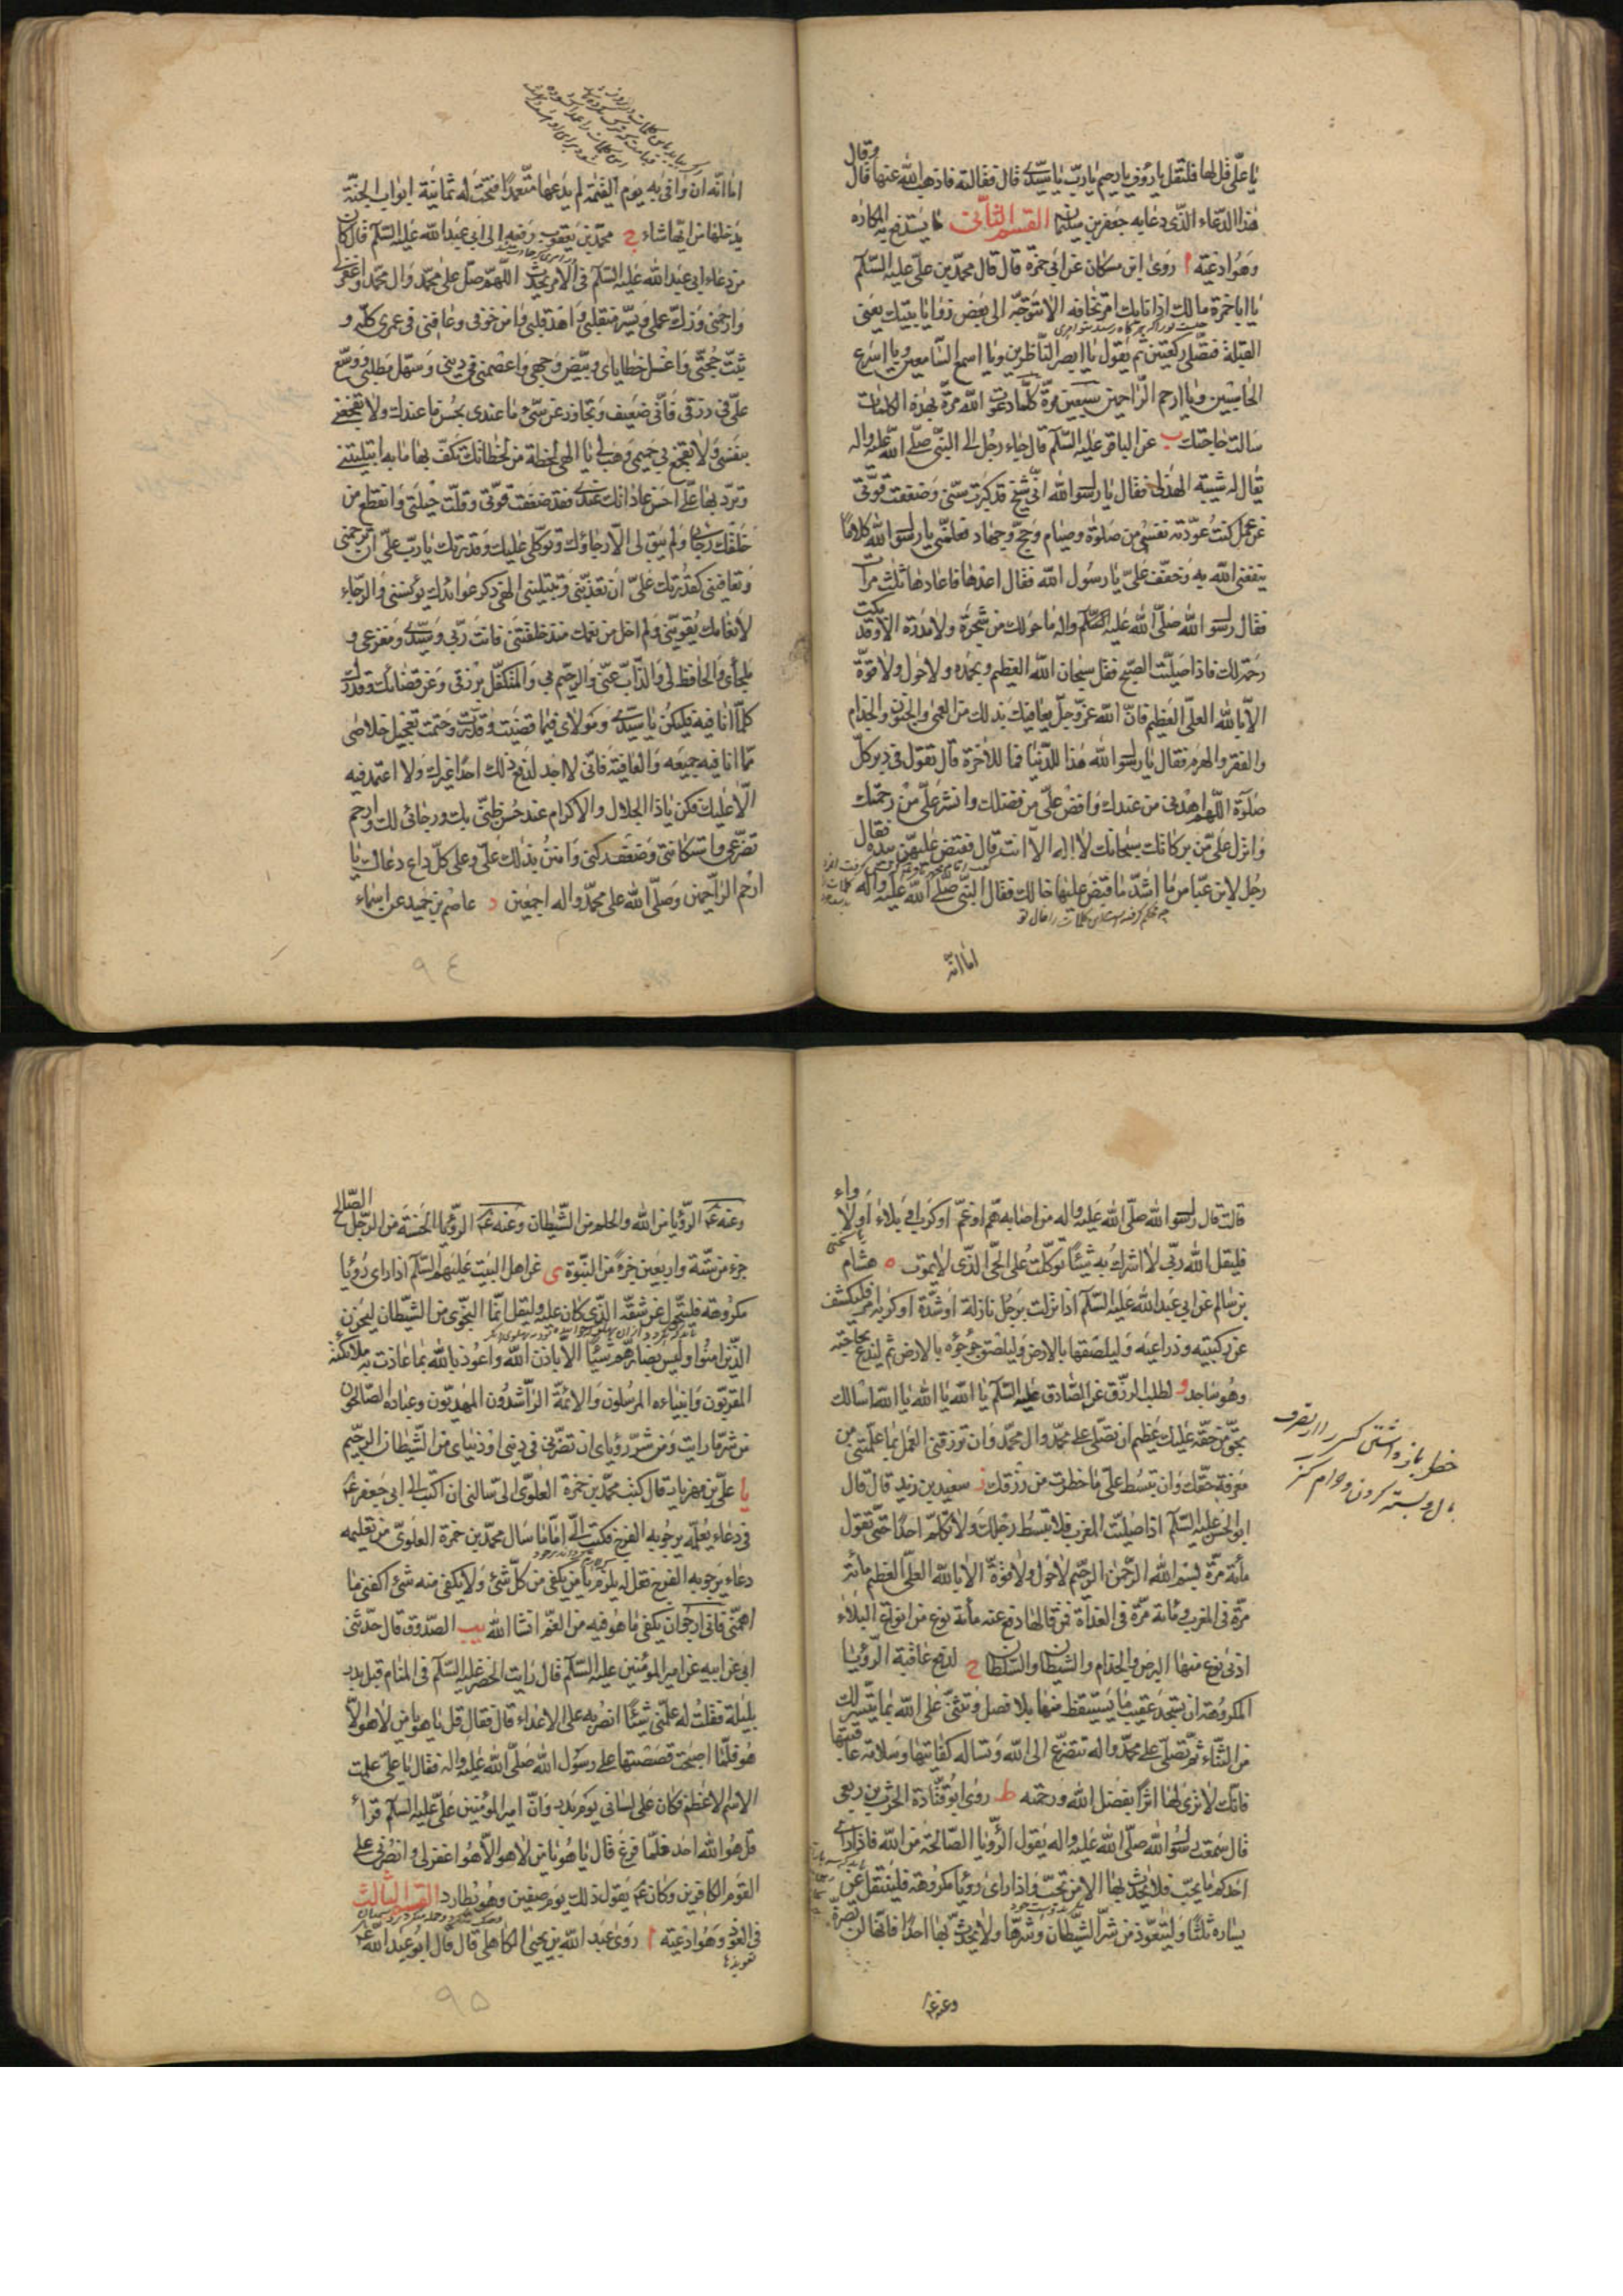 يا علي قل لها فلتقل يا رؤف يا رحيم يا رب يا سيدي قال فقالته فاذهب الله عنها قال وقال
هذا الدعاء الذي دعا به جعفر بن سليمان القسم الثاني ما يستدفع به المكاره
وهو ادعية ا روى ابن مسكان عن ابي حمزة قال قال محمد بن علي عليه السلم
يا ابا حمزة ما لك اذا نابك امر تخافه الا تتوجه الى بعض زوايا بيتك يعني
القبلة فتصلي ركعتين ثم تقول يا ابصر الناظرين ويا اسمع السامعين ويا اسرع
الحاسبين ويا ارحم الراحمين سبعين مرة كلما دعوت الله مرة بهذه الكلمات
سالت حاجتك ب عن الباقر عليه السلم قال جاء رجل الى النبي صلى الله عليه واله
يقال له شيبة الهذلي فقال يا رسول الله اني شيخ قد كبرت سني وضعفت قوتي
عن عمل كنت عودته نفسي من صلوة وصيام وحج وجهاد فعلمني يا رسول الله كلاما
ينفعني الله به وخفف علي يا رسول الله فقال اعدها فاعادها ثلث مرات
فقال رسول الله صلى الله عليه واله ما حولك من شجرة ولا مدرة الا وقد بكت
رحمة لك فاذا صليت الصبح فقل سبحان الله العظيم وبحمده ولا حول ولا قوة
الا بالله العلي العظيم فان الله عز وجل يعافيك بذلك من العمى والجنون والجذام
والفقر والهرم فقال يا رسول الله هذا للدنيا فما للاخرة قال تقول في دبر كل
صلوة اللهم اهدني من عندك وافض علي من فضلك وانشر علي من رحمتك
وانزل علي من بركاتك سبحانك لا اله الا انت قال فقبض عليهن بيده فقال
رجل لابن عباس ما اشد ما قبض عليها خالك فقال النبي صلى الله عليه واله
اما انه
اما انه ان وافى به يوم القيمة لم يدعها متعمدا فتحت له ثمانية ابواب الجنة
يدخلها من ايها شاء ج محمد بن يعقوب رفعه الى ابي عبد الله عليه السلم قال كان
من دعاء ابي عبد الله عليه السلم في الامر يحدث اللهم صل على محمد وال محمد واغفر لي
وارحمني وزك عملي ويسر منقلبي واهد قلبي وامن خوفي وعافني في عمري كله و
ثبت حجتي واغسل خطاياي وبيض وجهي واعصمني في ديني وسهل مطلبي ووسع
علي في رزقي فاني ضعيف وتجاوز عن سيء ما عندي بحسن ما عندك ولا تفجعني
بنفسي ولا تفجع بي حميمي وهب لي يا الهي لحظة من لحظاتك تكف بها ما به ابتليتني
وترد بها علي احسن عاداتك عندي فقد ضعفت قوتي وقلت حيلتي وانقطع من
خلقك رجائي ولم يبق لي الا رجاؤك وتوكلي عليك وقدرتك يا رب علي ان ترحمني
وتعافيني كقدرتك علي ان تعذبني وتبتليني الهي ذكر عوائدك يؤنسني والرجاء
لانعامك يقويني ولم اخل من نعمك منذ خلقتني فانت ربي وسيدي ومفزعي و
ملجأي والحافظ لي والذاب عني والرحيم بي والمتكفل برزقي وعن قضائك وقدرتك
كلما انا فيه فليكن يا سيدي ومولاي فيما قضيت وقدرت وحتمت تعجيل خلاصي
مما انا فيه جميعه والعافية فاني لا اجد لدفع ذلك احدا غيرك ولا اعتمد فيه
الا عليك فكن يا ذا الجلال والاكرام عند حسن ظني بك ورجائي لك وارحم
تضرعي واستكانتي وضعف ركني وامنن بذلك علي وعلى كل داع دعاك يا
ارحم الراحمين وصلى الله على محمد واله اجمعين د عاصم بن حميد عن اسماء
٩٤
قالت قال رسول الله صلى الله عليه واله من اصابه هم او غم او كرب او بلاء او لاواء
فليقل الله ربي لا اشرك به شيئا توكلت على الحي الذي لا يموت ه هشام
بن سالم عن ابي عبد الله عليه السلم اذا نزلت برجل نازلة او شدة او كربه امر فليكشف
عن ركبتيه وذراعيه وليلصقها بالارض وليلصق جؤجؤه بالارض ثم ليدع بحاجته
وهو ساجد و لطلب الرزق عن الصادق عليه السلم يا الله يا الله يا الله اسالك
بحق من حقه عليك عظيم ان تصلي على محمد وال محمد وان ترزقني العمل بما علمتني من
معرفة حقك وان تبسط علي ما حظرت من رزقك ز سعيد بن زيد قال قال
ابو الحسن عليه السلم اذا صليت المغرب فلا تبسط رجلك ولا تكلم احدا حتى تقول
مأئة مرة بسم الله الرحمن الرحيم لا حول ولا قوة الا بالله العلي العظيم مأئة
مرة في المغرب ومائة مرة في الغداة فمن قالها دفع عنه مائة نوع من انواع البلاء
ادنى نوع منها البرص والجذام والشيطان والسلطان ح لدفع عاقبة الرؤيا
المكروهة ان تسجد عقيب ما يستيقظ منها بلا فصل وتثني على الله بما تيسر لك
من الثناء ثم تصلي على محمد واله تتضرع الى الله وتساله كفايتها وسلامة عاقبتها
فانك لا ترى لها اثرا بفضل الله ورحمته ط روى ابو قتادة الحرث بن ربعي
قال سمعت رسول الله صلى الله عليه واله يقول الرؤيا الصالحة من الله فاذا راى
احدكم ما يحب فلا يحدث بها الا من تحب واذا راى رؤيا مكروهة فلينتقل عن
يساره ثلثا وليتعوذ من شر الشيطان وشرها ولا يحدث بها احدا فانها لن تضره
وعنه ع
حظر باز داشتن
وعنه ع الرؤيا من الله والحلم من الشيطان وعنه ع الرؤيا الحسنة من الرجل الصالح
جزء من ستة واربعين جزءا من النبوة ي عن اهل البيت عليهم السلم اذا راى رؤيا
مكروهة فليتحول عن شقه الذي كان عليه وليقل انما النجوى من الشيطان ليحزن
الذين امنوا وليس بضارهم شيئا الا باذن الله واعوذ بالله بما عاذت به ملائكته
المقربون وانبياءه المرسلون والائمة الراشدون المهديون وعباده الصالحون
من شر ما رايت ومن شر رؤياي ان تضرني في ديني او دنياي من الشيطان الرجيم
يا علي بن مهزيار قال كتب محمد بن حمزة العلوي الي سالني ان اكتب الى ابي جعفر ع
في دعاء يعلمه يرجو به الفرج فكتب الي اما ما سال محمد بن حمزة العلوي من تعليمه
دعاء يرجو به الفرج فقل له يلزم يا من يكفي من كل شئ ولا يكفي منه شئ اكفني ما
اهمني فاني ارجو ان يكفي ما هو فيه من الغم انشا الله يب الصدوق قال حدثني
ابي عن ابيه عن امير المؤمنين عليه السلم قال رايت الخضر عليه السلم في المنام قبل بدر
بليلة فقلت له علمني شيئا انصر به على الاعداء قال فقال قل يا هو يا من لا هو الا
هو فلما اصبحت قصصتها على رسول الله صلى الله عليه واله فقال يا علي علمت
الاسم الاعظم فكان على لساني يوم بدر وان امير المؤمنين علي عليه السلم قرأ
قل هو الله احد فلما فرغ قال يا هو يا من لا هو الا هو اغفر لي وانصرني على
القوم الكافرين وكان ع يقول ذلك يوم صفين وهو يطارد القسم الثالث
في العوذ وهو ادعية ا روى عبد الله بن يحيى الكاهلي قال قال ابو عبد الله ع
تعويذها
٩٥